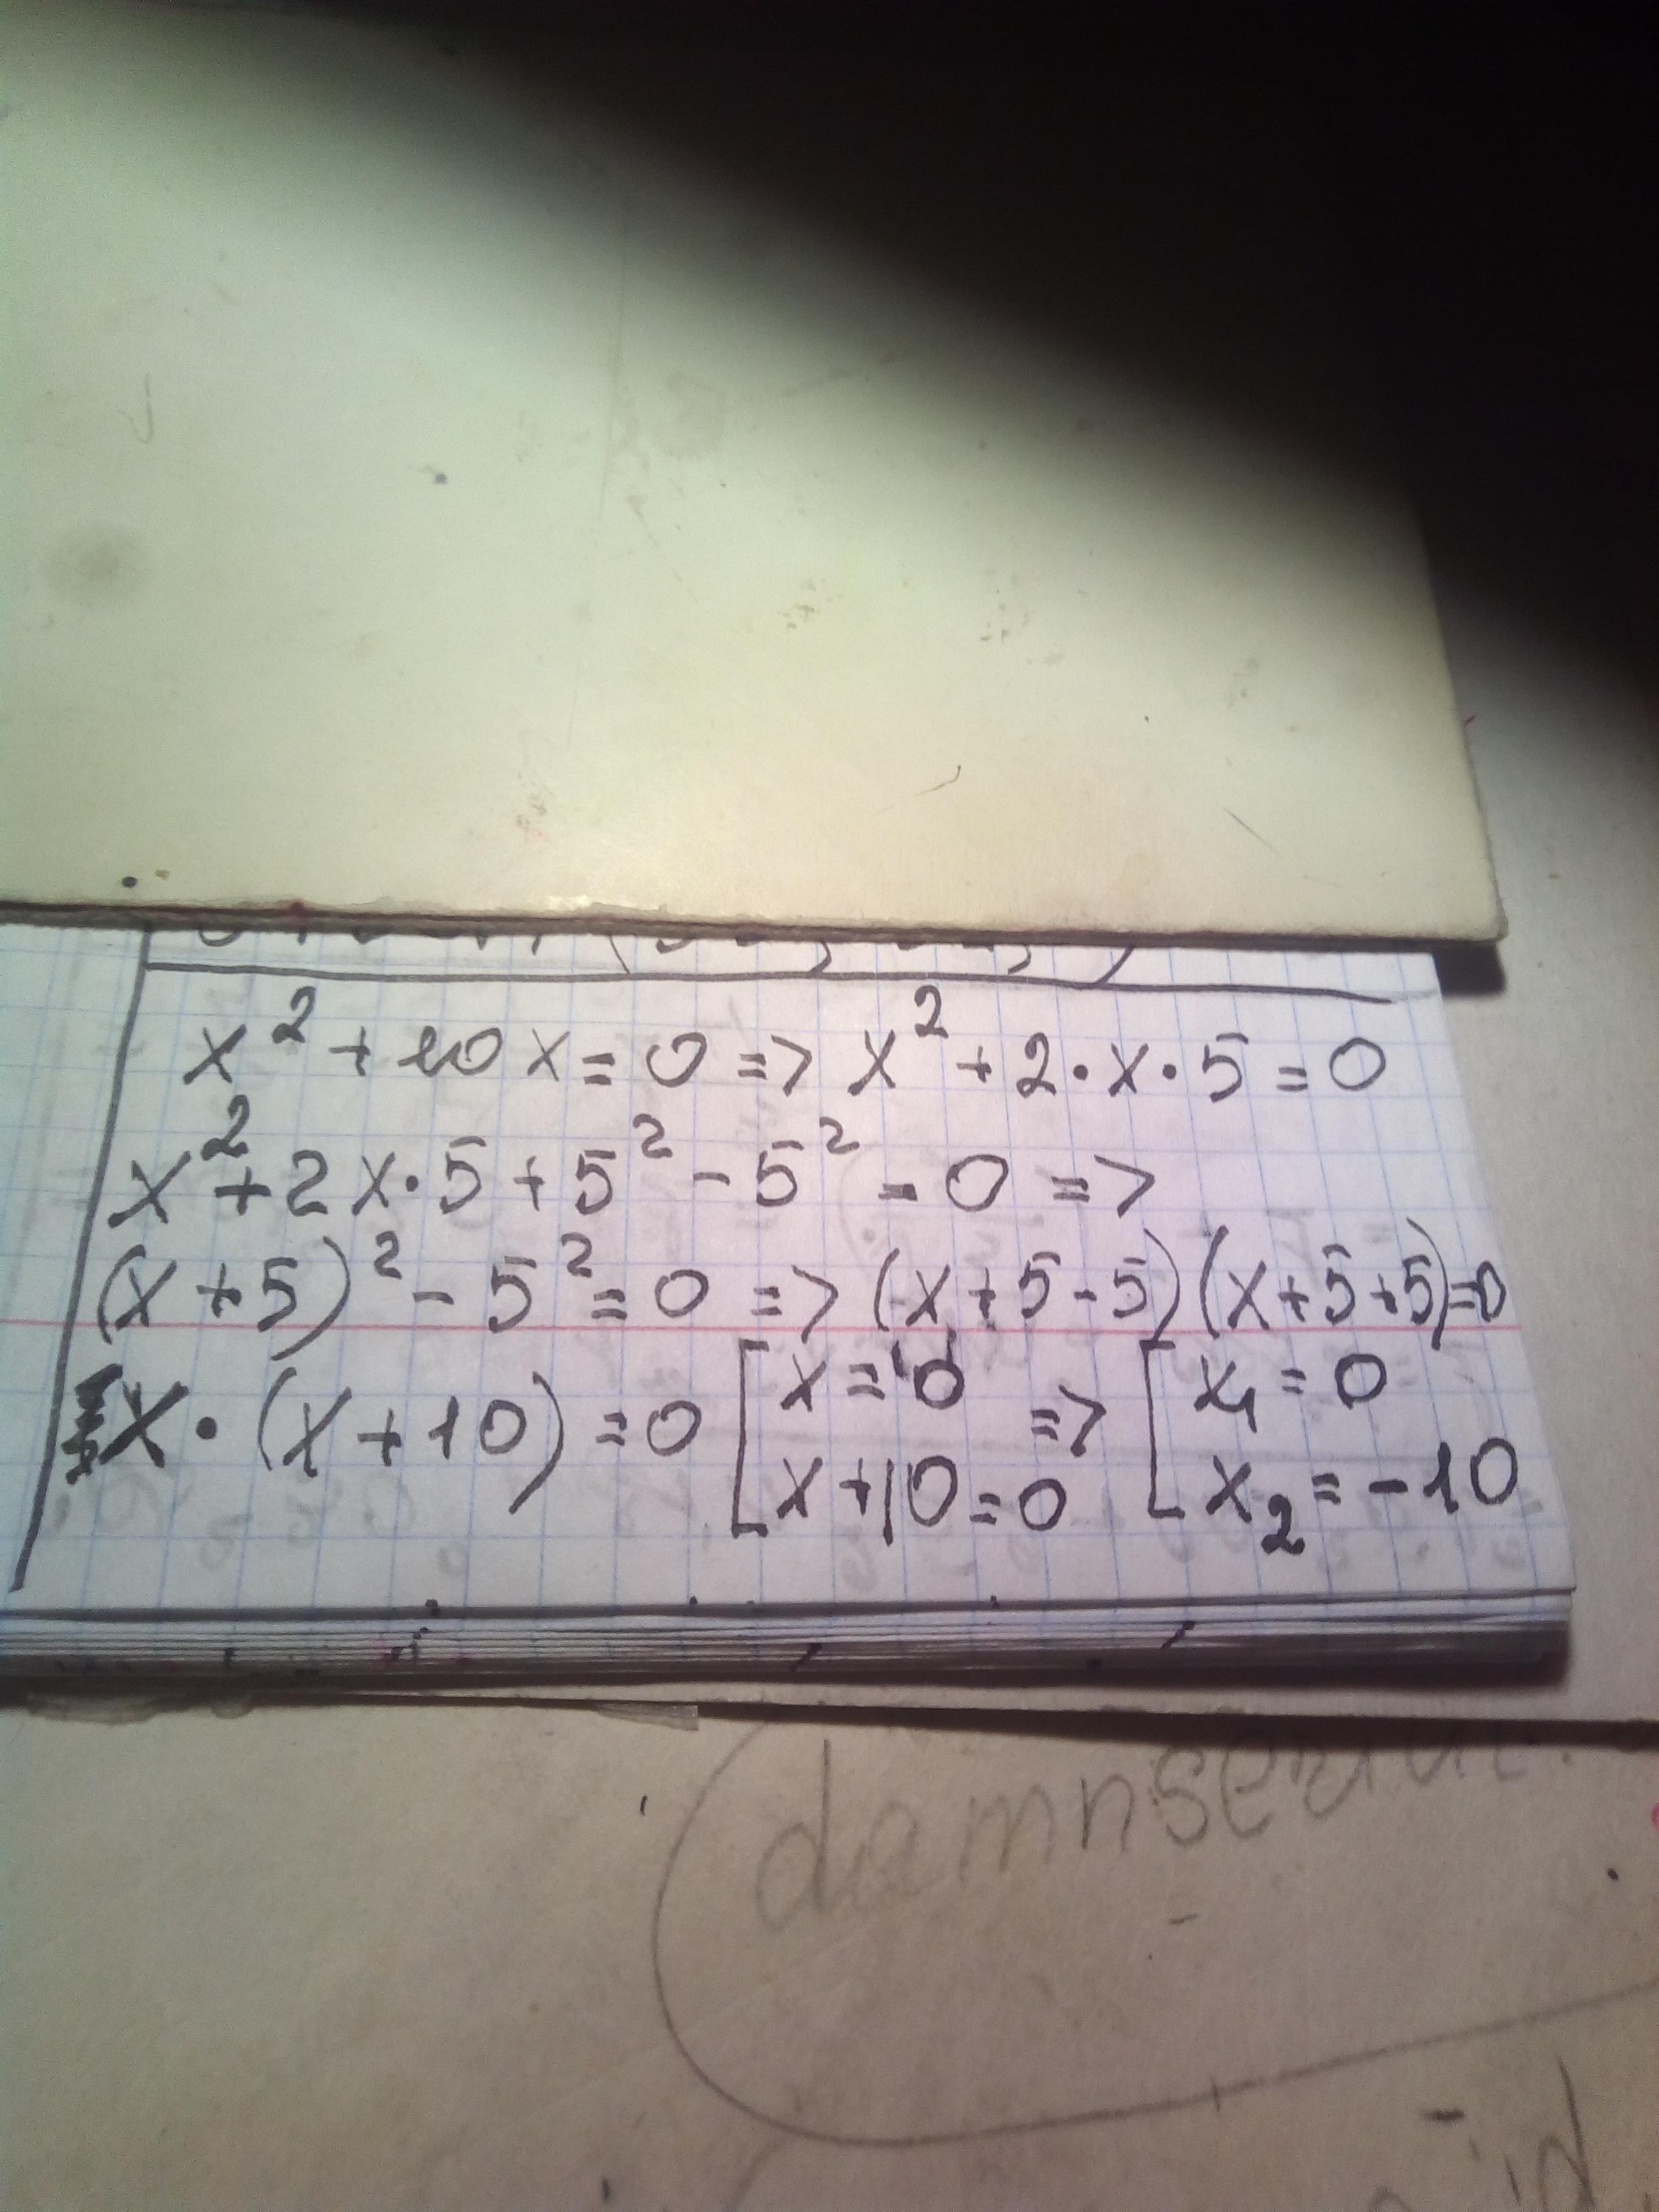 x² + 10x = 0 => x² + 2·x·5 = 0
x² + 2x·5 + 5² - 5² = 0 =>
(x + 5)² - 5² = 0 => (x + 5 - 5)(x + 5 + 5) = 0
x · (x + 10) = 0 [ x = 0 => [ x₁ = 0
x + 10 = 0 x₂ = -10